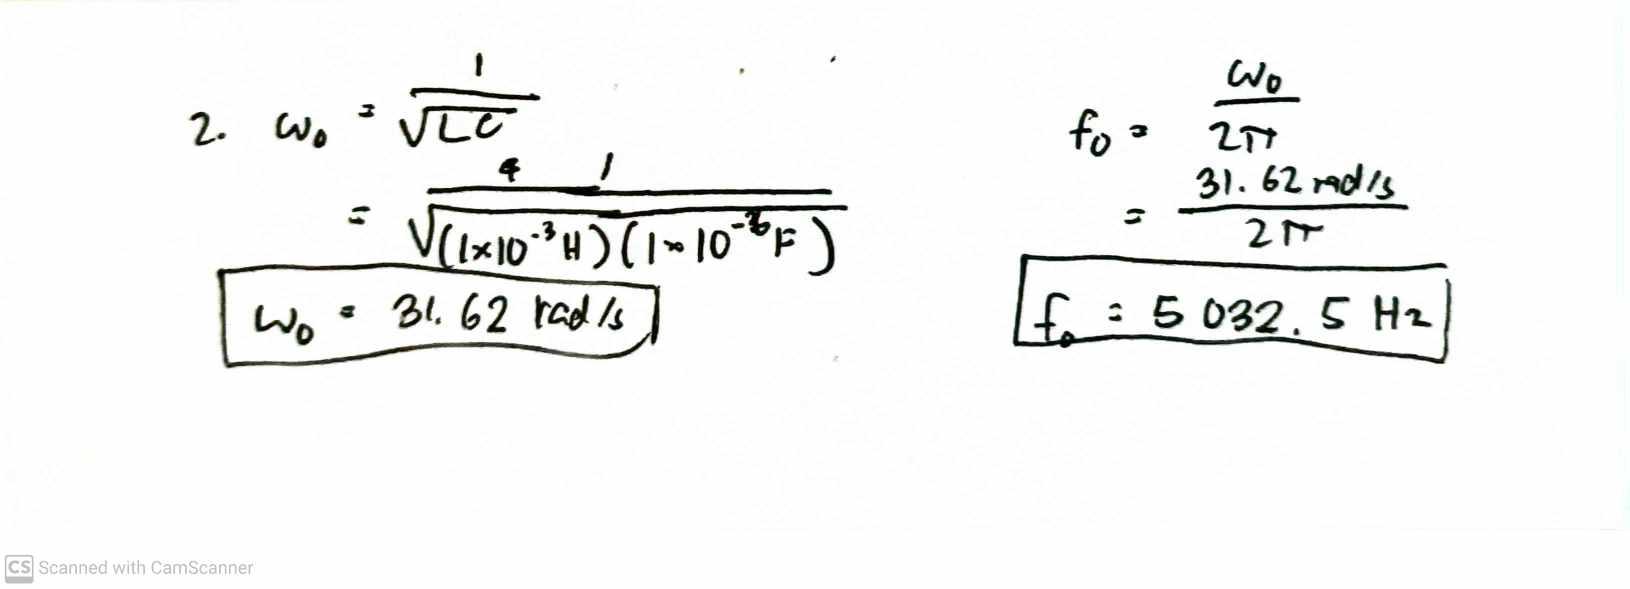 2. ω₀ = 1/√LC
= 1/√(1×10⁻³ H)(1×10⁻⁶ F)
ω₀ = 31.62 rad/s
f₀ = ω₀/2π
= 31.62 rad/s/2π
f₀ = 5 032.5 Hz
CS Scanned with CamScanner